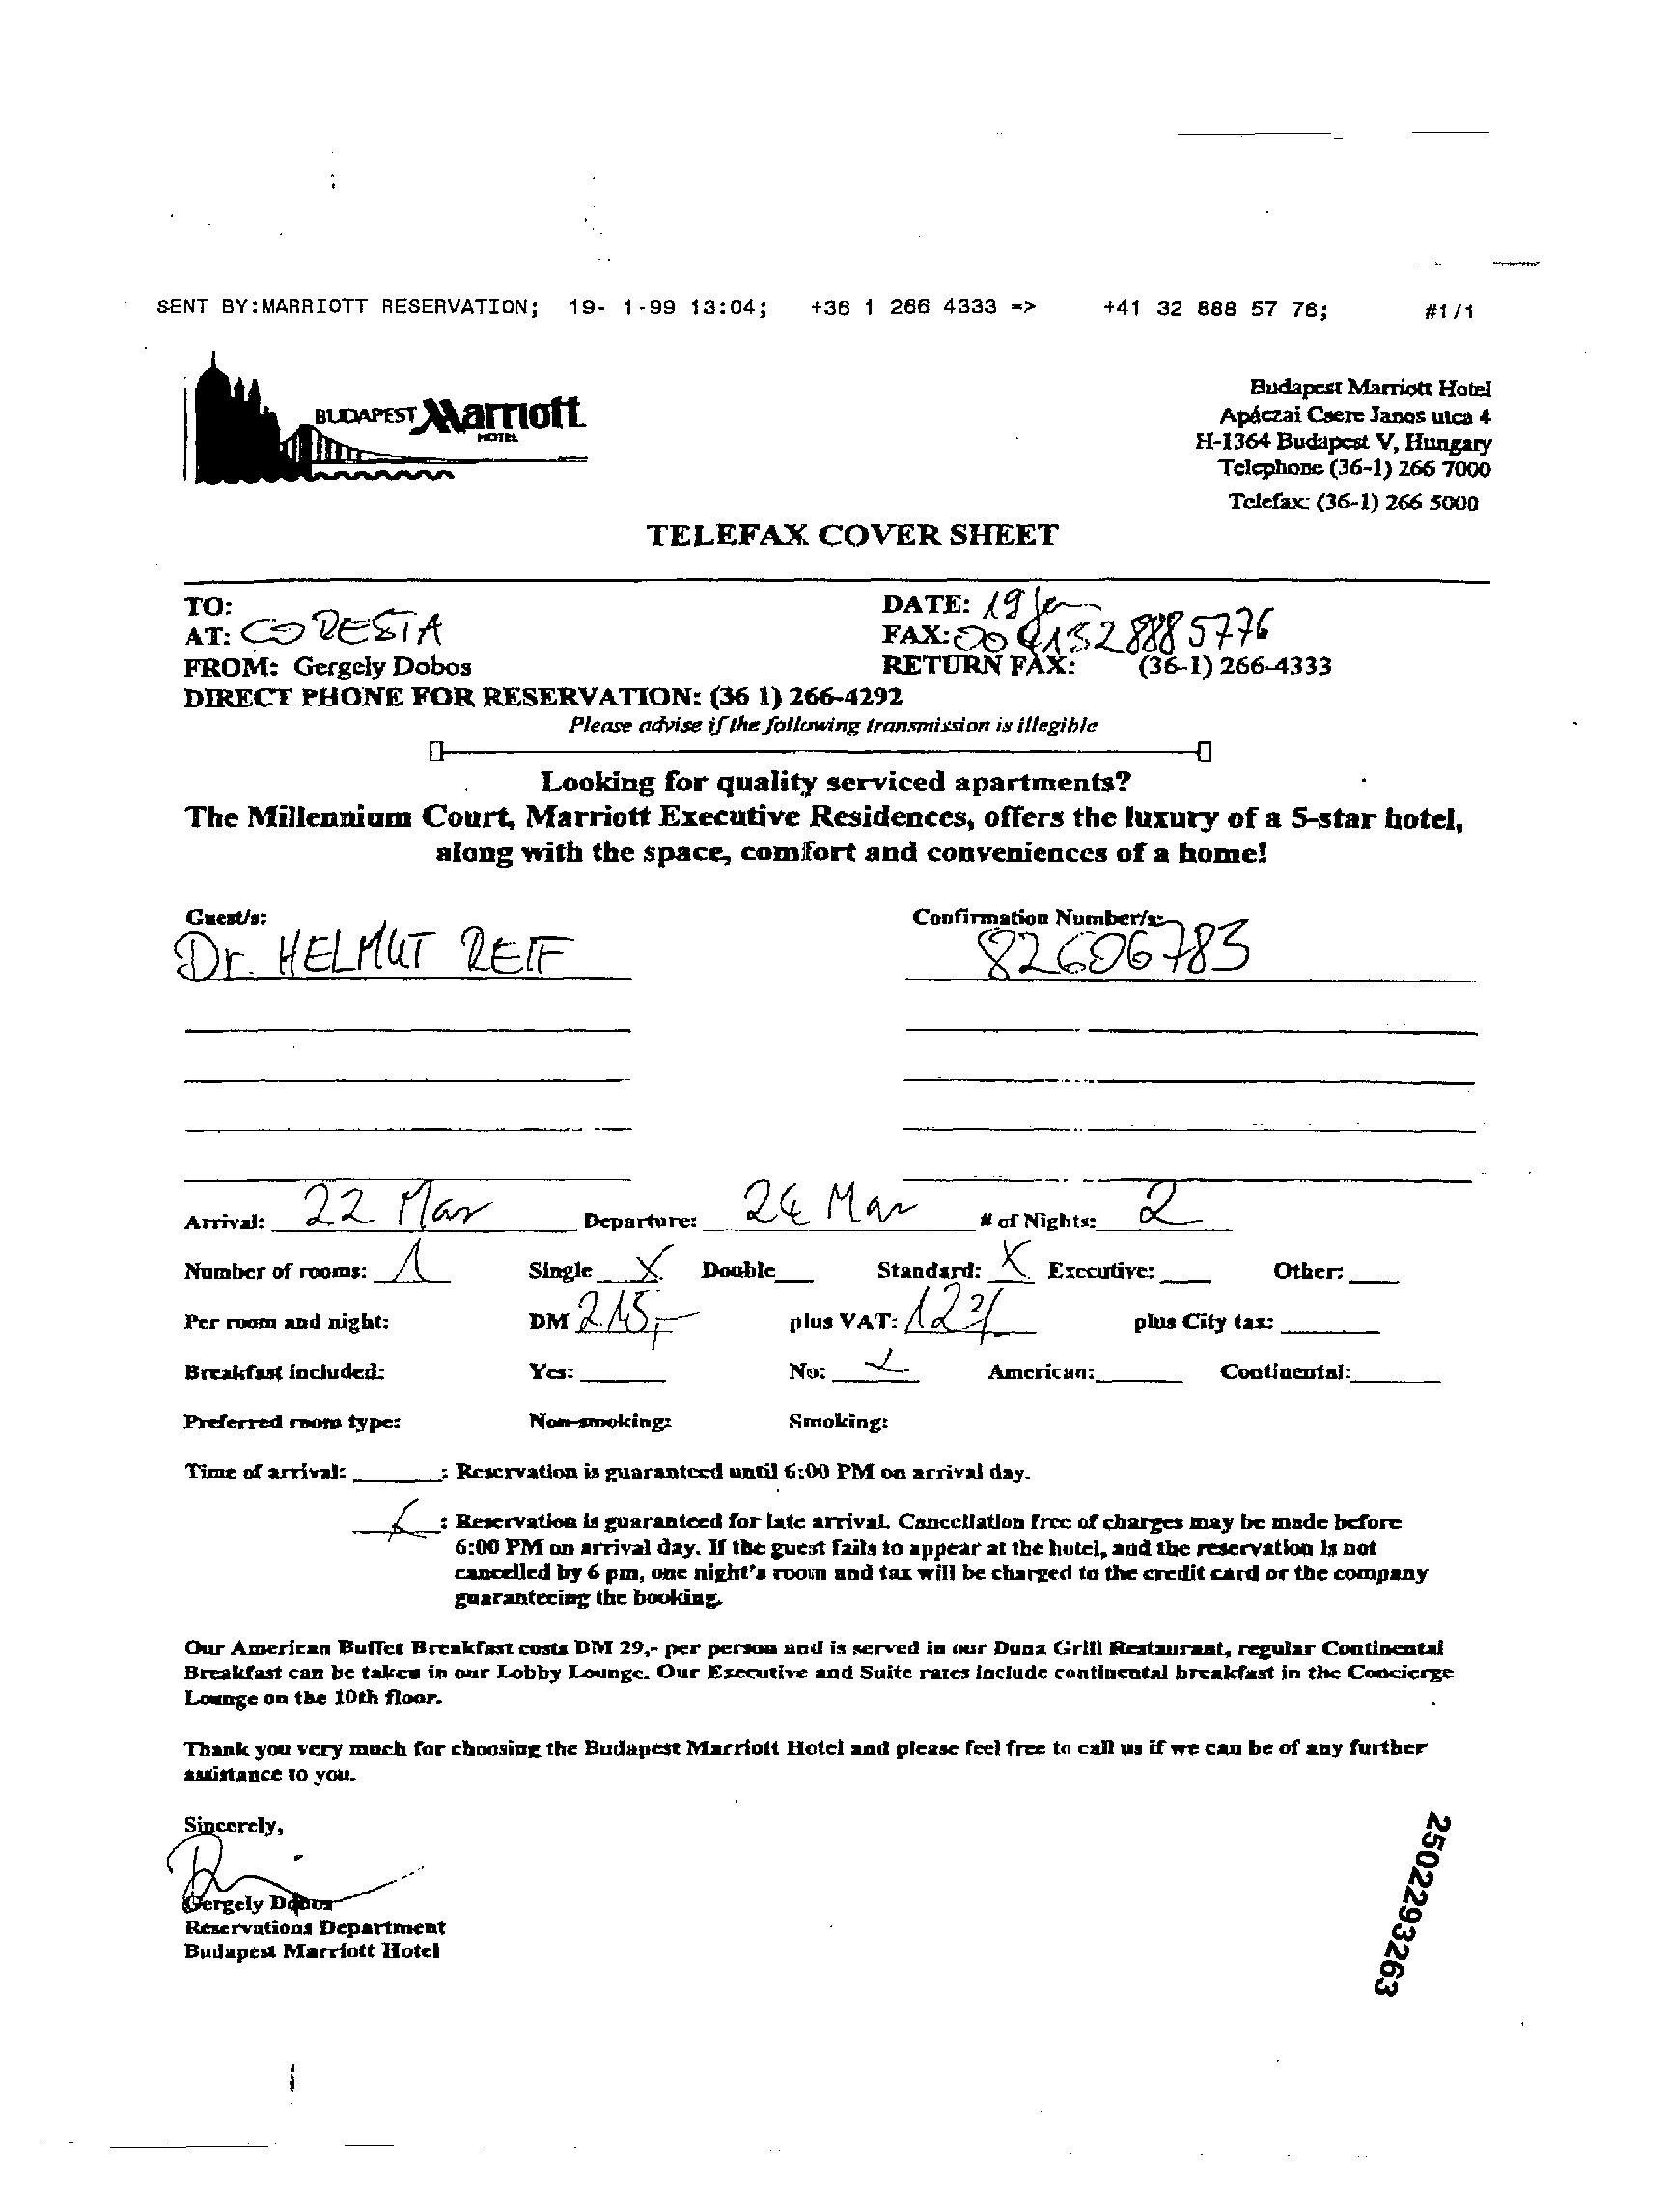 SENT BY:MARRIOTT RESERVATION; 19- 1-99 13:04; +36 1 266 4333 => +41 32 888 57 76; #1/1
BUDAPEST Marriott
HOTEL
Budapest Marriott Hotel
Apáczai Csere Janos utca 4
H-1364 Budapest V, Hungary
Telephone (36-1) 266 7000
Telefax: (36-1) 266 5000
TELEFAX COVER SHEET
TO: DATE: 19 Jan
AT: CORESTA FAX: 0041328885776
FROM: Gergely Dobos RETURN FAX: (36-1) 266-4333
DIRECT PHONE FOR RESERVATION: (36 1) 266-4292
Please advise if the following transmission is illegible
Looking for quality serviced apartments?
The Millennium Court, Marriott Executive Residences, offers the luxury of a 5-star hotel,
along with the space, comfort and conveniences of a home!
Guest/s: Confirmation Number/s:
Dr. HELMUT REIF 82606783
Arrival: 22 Mar Departure: 24 Mar # of Nights: 2
Number of rooms: 1 Single X Double Standard: X Executive: Other:
Per room and night: DM 215,- plus VAT: 12% plus City tax:
Breakfast included: Yes: No: X American: Continental:
Preferred room type: Non-smoking: Smoking:
Time of arrival: : Reservation is guaranteed until 6:00 PM on arrival day.
X : Reservation is guaranteed for late arrival. Cancellation free of charges may be made before
6:00 PM on arrival day. If the guest fails to appear at the hotel, and the reservation is not
cancelled by 6 pm, one night's room and tax will be charged to the credit card or the company
guaranteeing the booking.
Our American Buffet Breakfast costs DM 29,- per person and is served in our Duna Grill Restaurant, regular Continental
Breakfast can be taken in our Lobby Lounge. Our Executive and Suite rates include continental breakfast in the Concierge
Lounge on the 10th floor.
Thank you very much for choosing the Budapest Marriott Hotel and please feel free to call us if we can be of any further
assistance to you.
Sincerely,
Gergely Dobos
Reservations Department
Budapest Marriott Hotel
2502293263